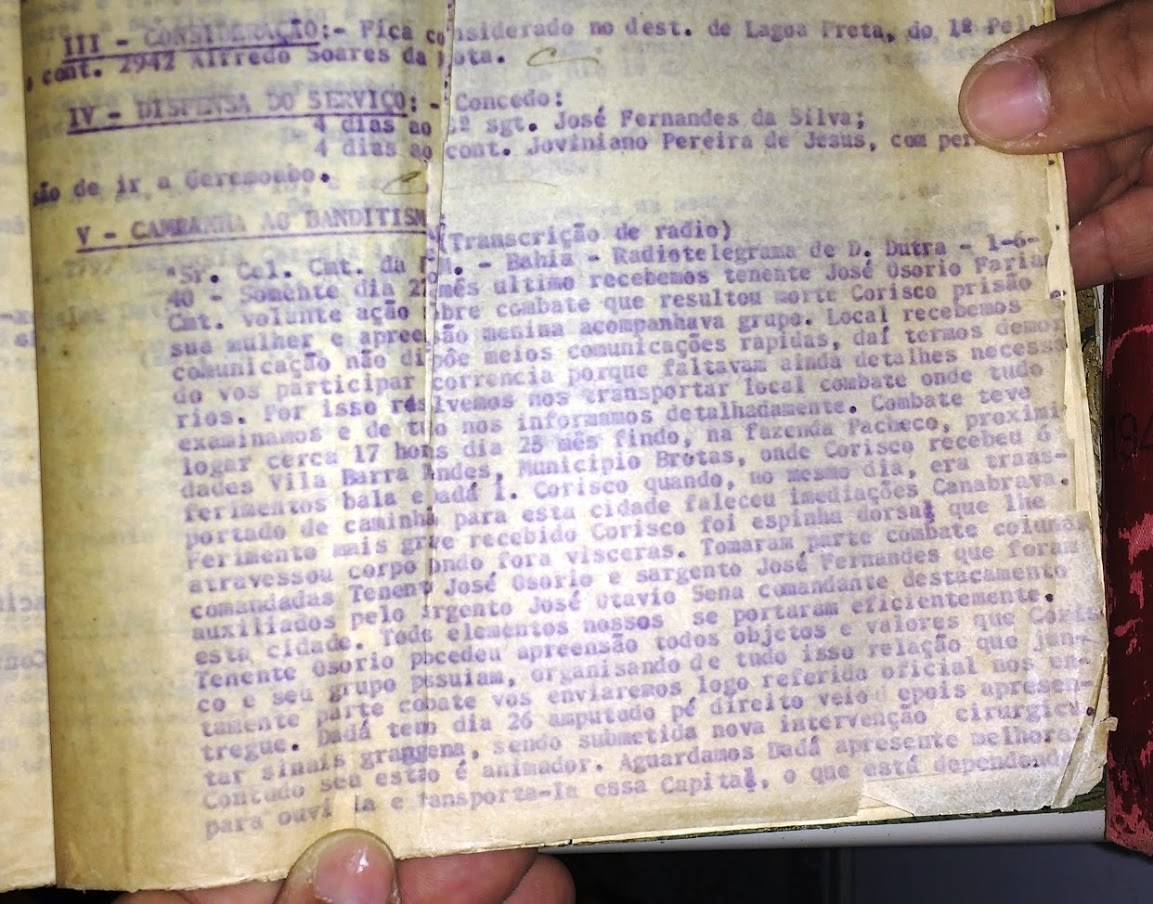 III - CONSIDERAÇÃO:- Fica considerado no dest. de Lagoa Preta, do 1º Pel
, cont. 2942 Alfredo Soares da ota.
IV - DISPENSA DO SERVIÇO: - Concedo:
4 dias ao º sgt. José Fernandes da Silva;
4 dias ao cont. Joviniano Pereira de Jesus, com per
são de ir a Geremoabo.
V - CAMPANHA AO BANDITISM
(Transcrição de radio)
"Sr. Cel. Cmt. da M. - Bahia - Radiotelegrama de D. Dutra - 1-6-
40 - Somente dia 2 mês ultimo recebemos tenente José Osorio Faria
Cmt. volante ação bre combate que resultou morte Corisco prisão
sua mulher e apreensão menina acompanhava grupo. Local recebemos
comunicação não dispõe meios comunicações rapidas, daí termos demor
do vos participar correncia porque faltavam ainda detalhes necessá
rios. Por isso resolvemos nos transportar local combate onde tudo
examinamos e de tudo nos informamos detalhadamente. Combate teve
logar cerca 17 horas dia 25 mês findo, na fazenda Pacheco, proximi
dades Vila Barra endes, Municipio Brotas, onde Corisco recebeu 6
ferimentos bala e Dadá 1. Corisco quando, no mesmo dia, era trans-
portado de caminhã para esta cidade faleceu imediações Canabrava.
Ferimento mais grave recebido Corisco foi espinha dorsal que lhe
atravessou corpo ondo fora visceras. Tomaram parte combate colunas
comandadas Tenent José Osorio e sargento José Fernandes que foram
auxiliados pelo argento José Otavio Sena comandante destacamento
esta cidade. Tods elementos nossos se portaram eficientemente.
Tenente Osorio pocedeu apreensão todos objetos e valores que Coris
co e seu grupo pssuiam, organisando de tudo isso relação que jun-
tamente parte cobate vos enviaremos logo referido oficial nos en-
tregue. Dadá tem dia 26 amputado pé direito veio depois apresen-
tar sinais grangena, sendo submetida nova intervenção cirurgica.
Contudo seu estao é animador. Aguardamos Dadá apresente melhoras
para ouvi la e tansporta-la essa Capital, o que está dependendo